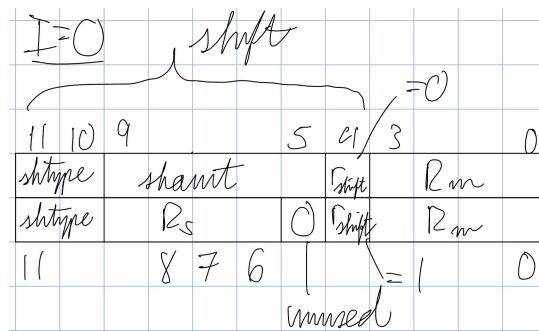 I=0 shift
=0
11 10 9 5 4 3 0
shtype shamt rshift Rm
shtype Rs 0 rshift Rm
11 8 7 6 | =1 0
unused